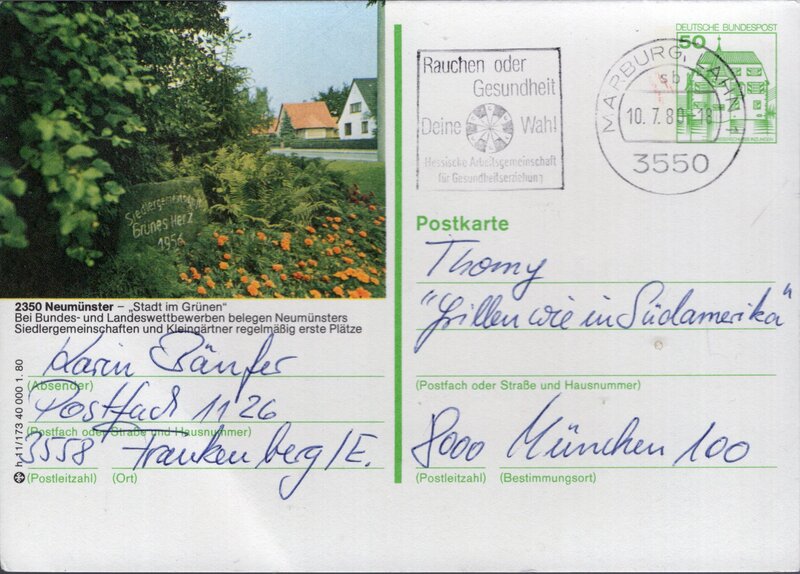 Siedlergemeinschaft
Grünes Herz
1956
2350 Neumünster – „Stadt im Grünen"
Bei Bundes- und Landeswettbewerben belegen Neumünsters
Siedlergemeinschaften und Kleingärtner regelmäßig erste Plätze
Karin Bänfer
(Absender)
Postfach 1126
(Postfach oder Straße und Hausnummer)
3558 Frankenberg/E.
(Postleitzahl) (Ort)
h 11/173 40 000 1. 80
Rauchen oder
Gesundheit
Deine Wahl
Hessische Arbeitsgemeinschaft
für Gesundheitserziehung
MARBURG, LAHN 1
sb
10.7.80-18
3550
DEUTSCHE BUNDESPOST
50
Postkarte
Thomy
"Grillen wie in Südamerika"
(Postfach oder Straße und Hausnummer)
8000 München 100
(Postleitzahl) (Bestimmungsort)